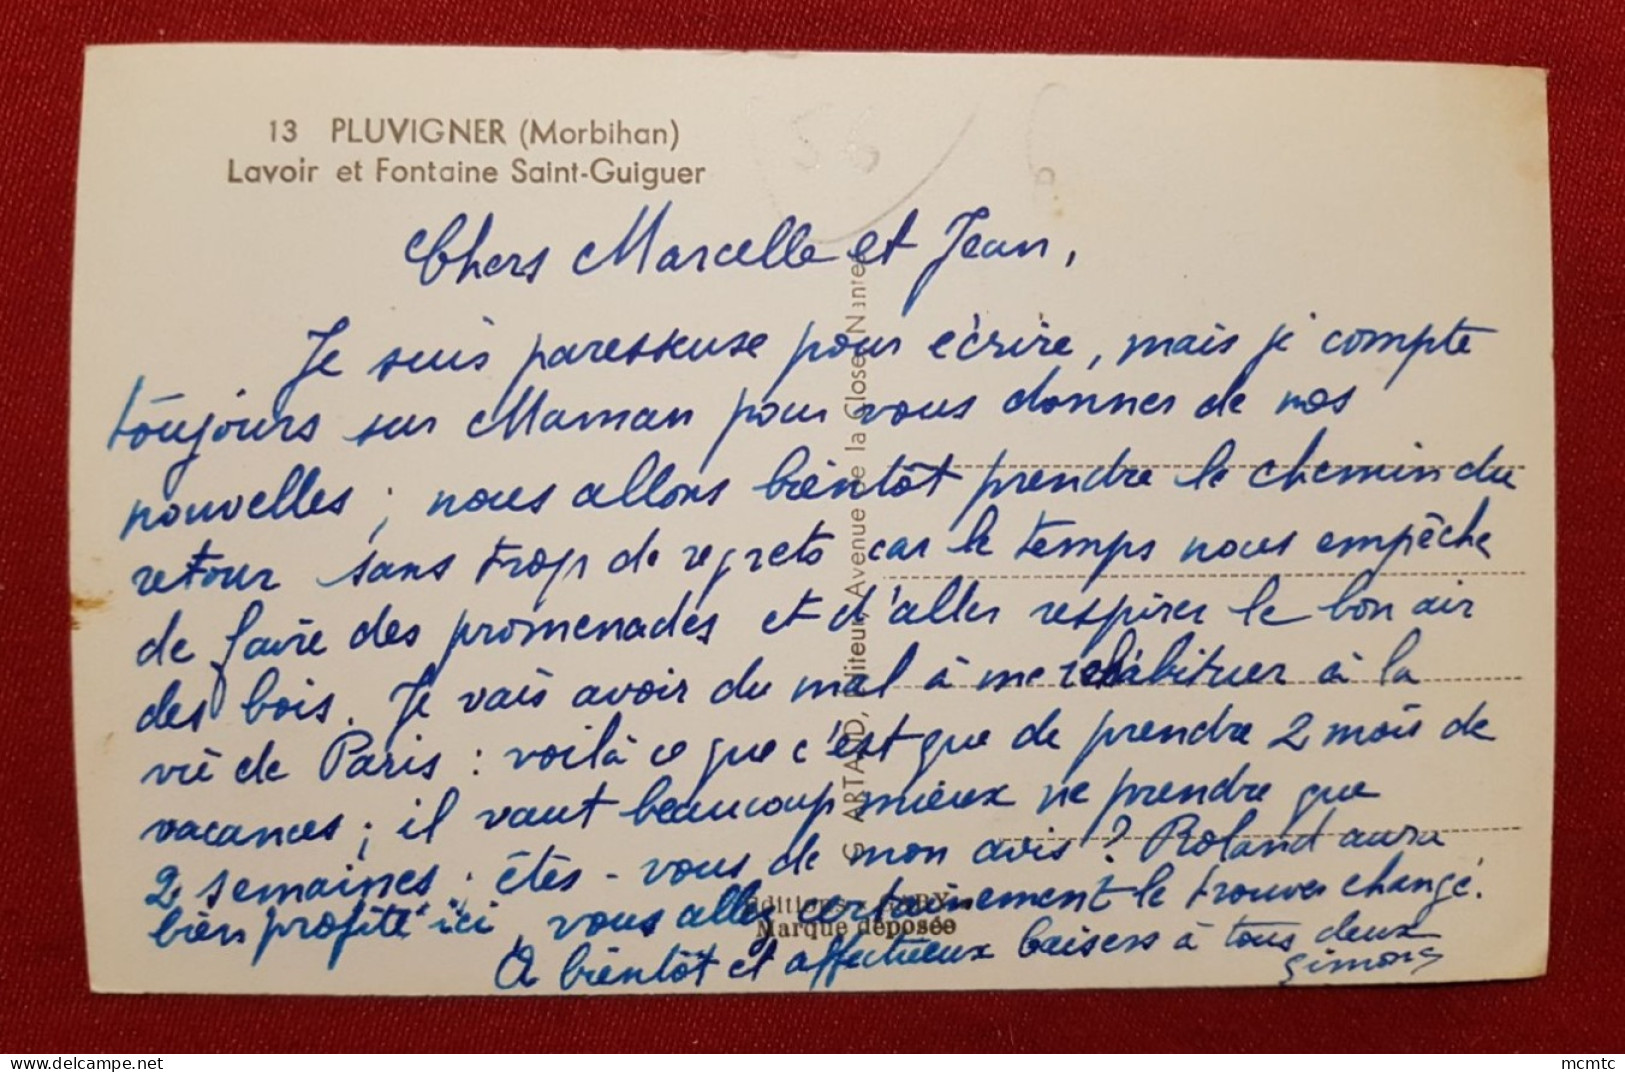 13 PLUVIGNER (Morbihan)
Lavoir et Fontaine Saint-Guiguer
Chers Marcelle et Jean,
Je suis paresseuse pour écrire, mais je compte
toujours sur Maman pour vous donner de nos
nouvelles ; nous allons bientôt prendre le chemin du
retour sans trop de regrets car le temps nous empêche
de faire des promenades et d'aller respirer le bon air
des bois. Je vais avoir du mal à me réhabituer à la
vie de Paris : voilà ce que c'est que de prendre 2 mois de
vacances ; il vaut beaucoup mieux ne prendre que
2 semaines ; êtes-vous de mon avis ? Roland aura
bien profité ici, vous allez certainement le trouver changé.
A bientôt et affectueux baisers à tous deux
Simone
G. ARTAUD, Editeur, Avenue de la Close, Nantes
Editions GABY
Marque déposée
56
delcampe.net
mcmtc